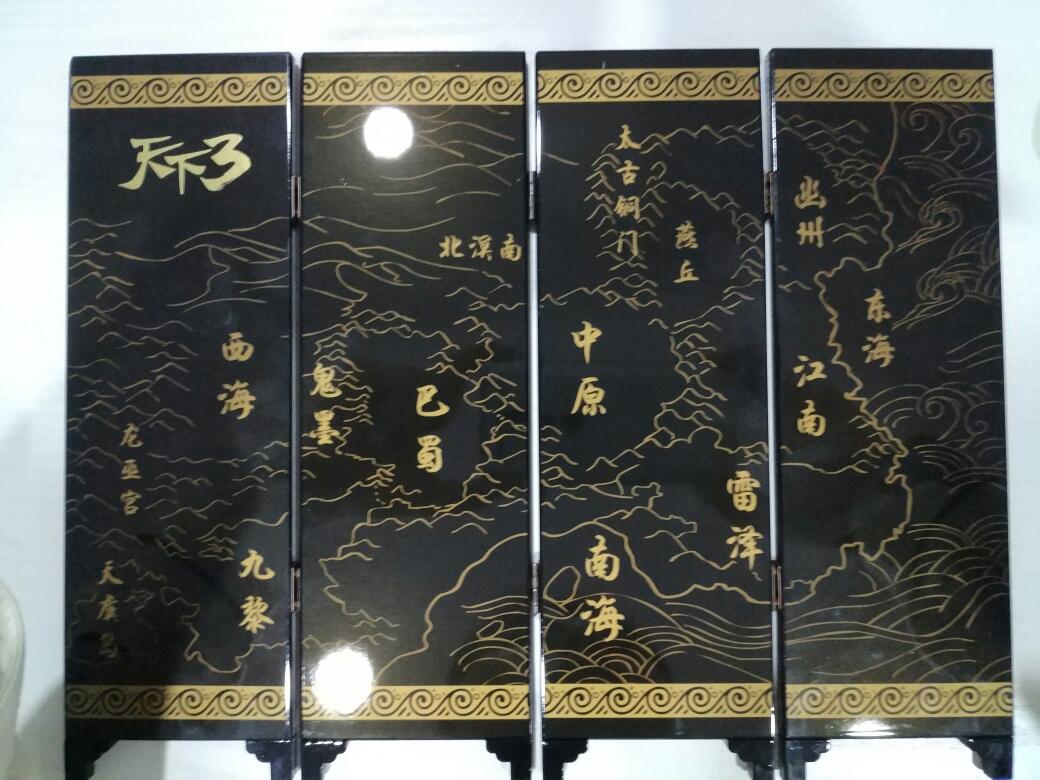 天下3
西海
龙巫宫
九黎
天虞岛
北溟南
鬼墨
巴蜀
太古铜门
燕丘
中原
雷泽
南海
幽州
东海
江南